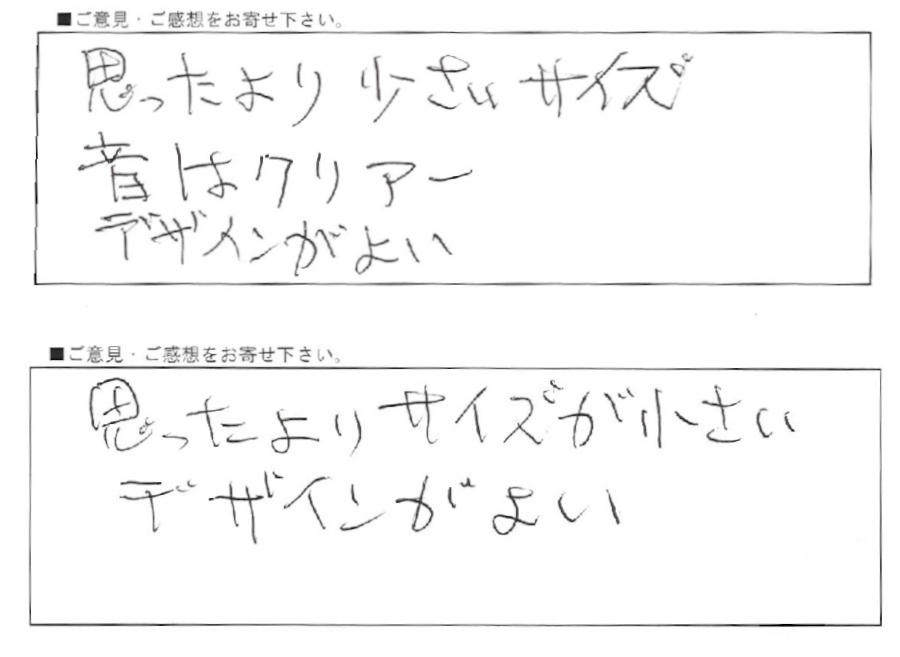 ■ご意見・ご感想をお寄せ下さい。
思ったより少さいサイズ
音はクリアー
デザインがよい
■ご意見・ご感想をお寄せ下さい。
思ったよりサイズが小さい
デザインがよい